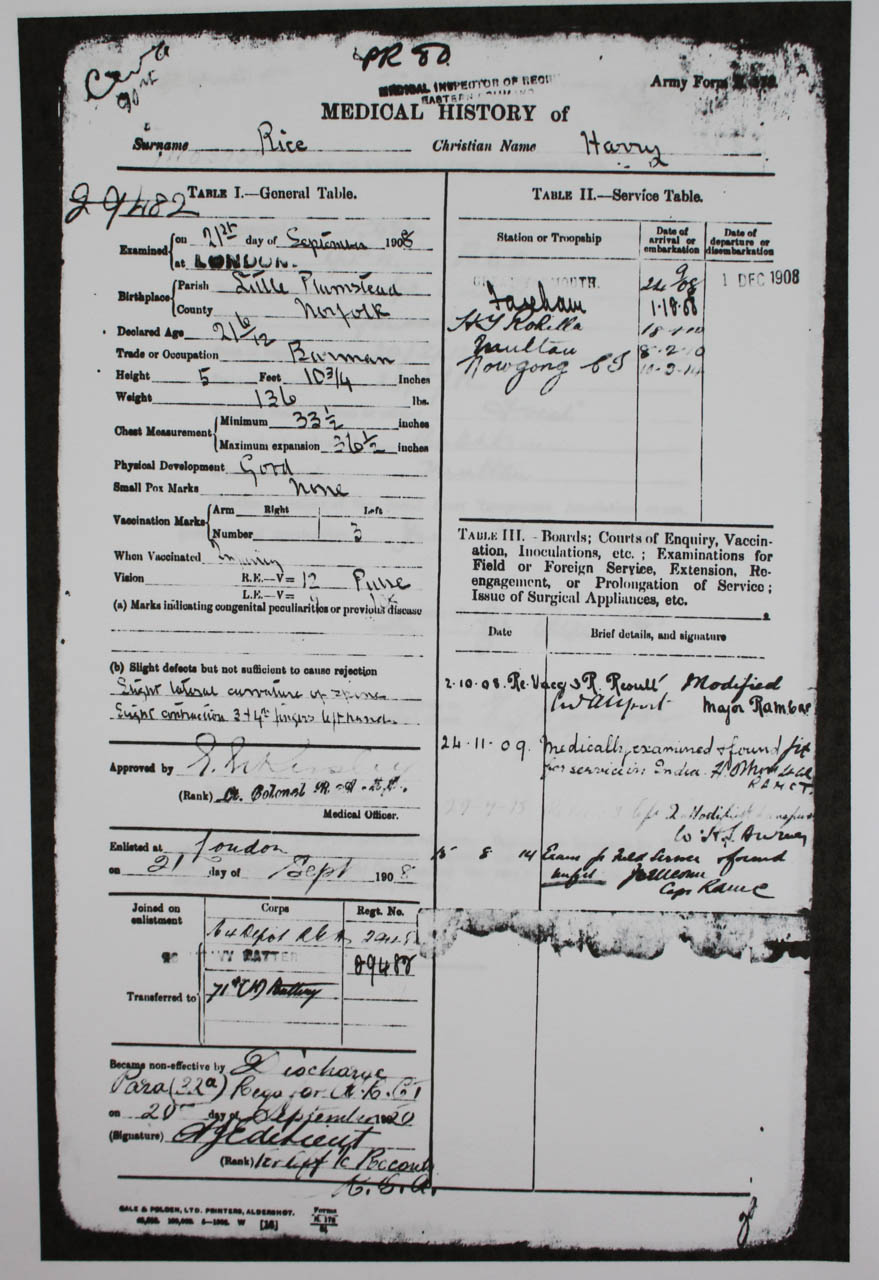 PR 80.
MEDICAL INSPECTOR OF
EASTERN
Army Form
MEDICAL HISTORY of
Surname Rice Christian Name Harry
29482
TABLE I.—General Table.
Examined on 21st day of September 1908
at LONDON.
Birthplace Parish Little Plumstead
County Norfolk
Declared Age 21 6/12
Trade or Occupation Barman
Height 5 Feet 10 3/4 Inches
Weight 136 lbs.
Chest Measurement Minimum 33 1/2 inches
Maximum expansion 36 1/2 inches
Physical Development Good
Small Pox Marks None
Vaccination Marks Arm Right Left
Number 3
When Vaccinated Infancy
Vision R.E.—V= 12
L.E.—V=
(a) Marks indicating congenital peculiarities or previous disease
(b) Slight defects but not sufficient to cause rejection
Slight lateral curvature of spine
Slight contraction 3 + 4th fingers left hand.
Approved by
(Rank) Lt. Colonel
Medical Officer.
Enlisted at London
on 21 day of Sept 1908
Joined on enlistment
Corps
Regt. No.
Depot
29482
Transferred to
71st (H) Battery
Became non-effective by Discharge
Para (22a)
on 20 day of September 1920
(Signature)
(Rank)
GALE & POLDEN, LTD. PRINTERS, ALDERSHOT.
Forms
TABLE II.—Service Table.
Station or Troopship
Date of arrival or embarkation
Date of departure or disembarkation
1 DEC 1908
Fareham
Multan
Nowgong
TABLE III. - Boards; Courts of Enquiry, Vaccin-
ation, Inoculations, etc.; Examinations for
Field or Foreign Service, Extension, Re-
engagement, or Prolongation of Service;
Issue of Surgical Appliances, etc.
Date
Brief details, and signature
2.10.08. Re Vacc Result Modified
Major Ramc
24.11.09. Medically examined & found fit
for service in India
15 8 14 Exam for Field Service & found
unfit
Capt RAMC